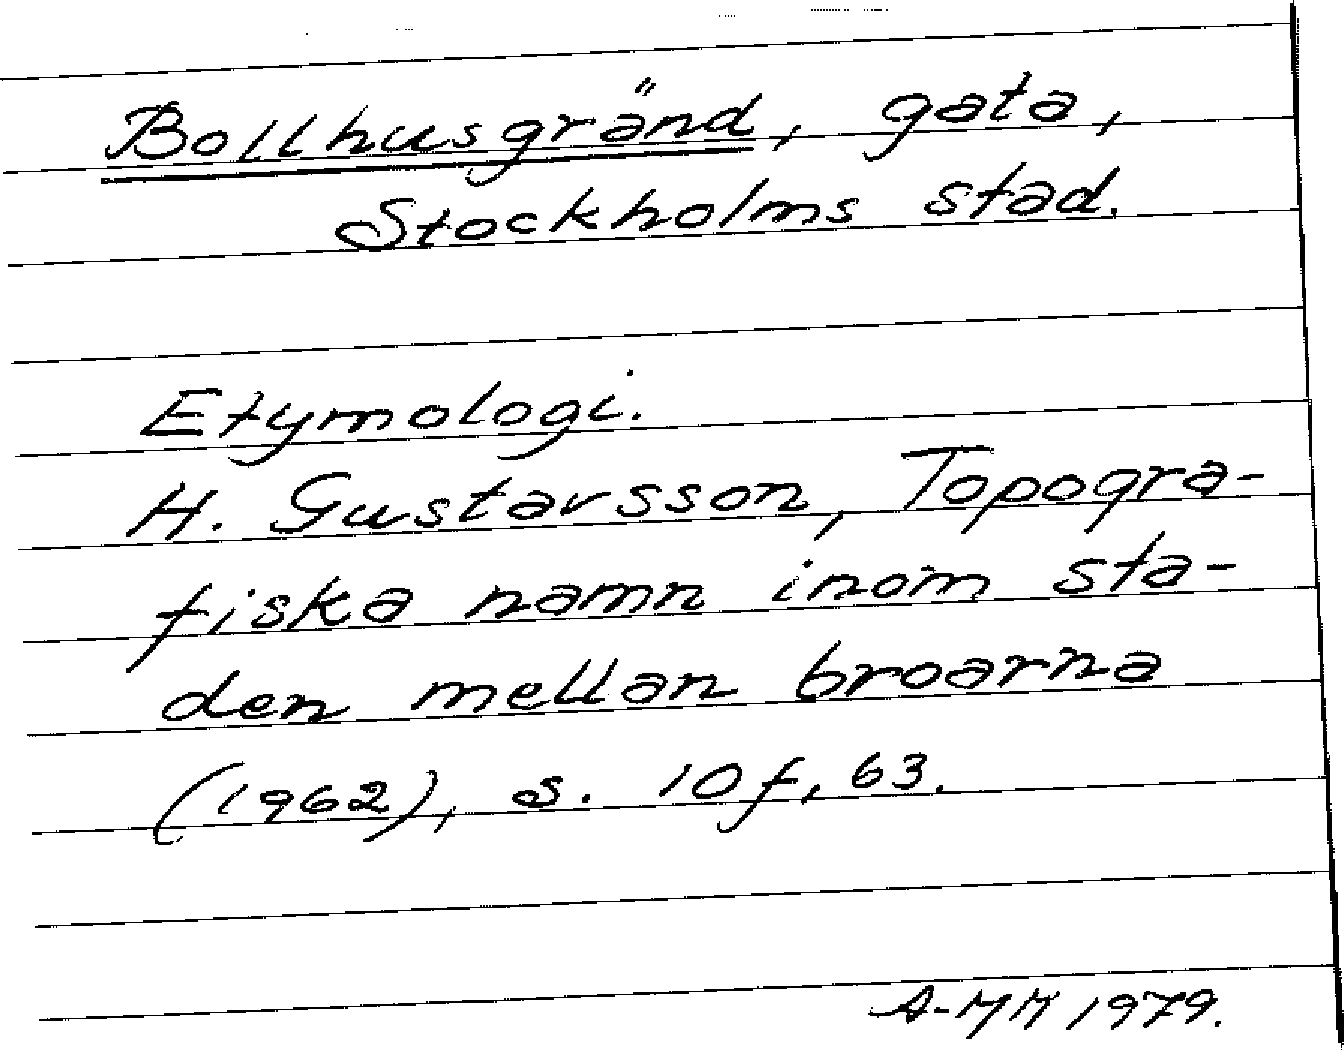 Bollhusgränd, gata,
Stockholms stad.
Etymologi.
H. Gustavsson, Topogra-
fiska namn inom sta-
den mellan broarna
(1962), s. 10 f, 63.
A-MM 1979.